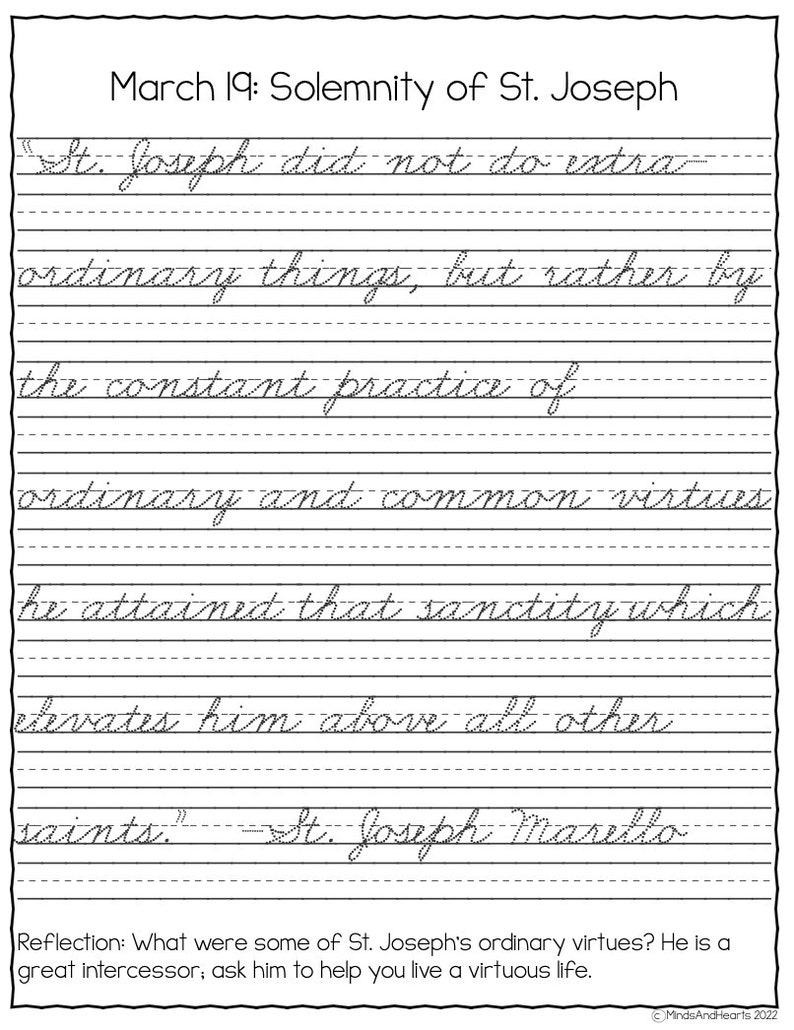 March 19: Solemnity of St. Joseph
"St. Joseph did not do extra-
ordinary things, but rather by
the constant practice of
ordinary and common virtues
he attained that sanctity which
elevates him above all other
saints." -St. Joseph Marello
Reflection: What were some of St. Joseph's ordinary virtues? He is a
great intercessor; ask him to help you live a virtuous life.
©MindsAndHearts 2022